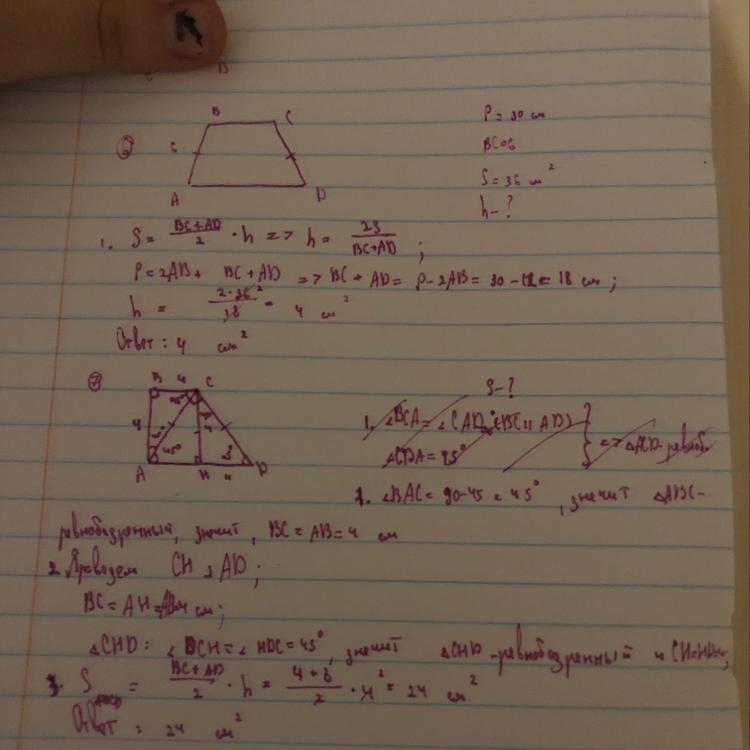 B
⑥
B C
6
A D
P = 30 см
BC=6
S = 36 см²
h - ?
1. S = (BC+AD)/2 · h => h = 2S/(BC+AD) ;
P = 2AB + BC + AD => BC + AD = P - 2AB = 30 - 12 = 18 см ;
h = 2·36/18 = 4 см²
Ответ : 4 см²
⑦
B 4 C
4
45°
A H 4 D
S - ?
1. ∠BCA = ∠CAD (BC || AD)
∠CDA = 45°
=> △ACD - равноб.
1. ∠BAC = 90-45 = 45° , значит △ABC-
равнобедренный, значит, BC = AB = 4 см
2. Проведем CH ⊥ AD ;
BC = AH = 4 см ;
△CHD : ∠DCH = ∠HDC = 45° , значит △CHD - равнобедренный и CH=HD
3. S ABCD = (BC + AD)/2 · h = (4 + 8)/2 · 4 = 24 см²
Ответ : 24 см²